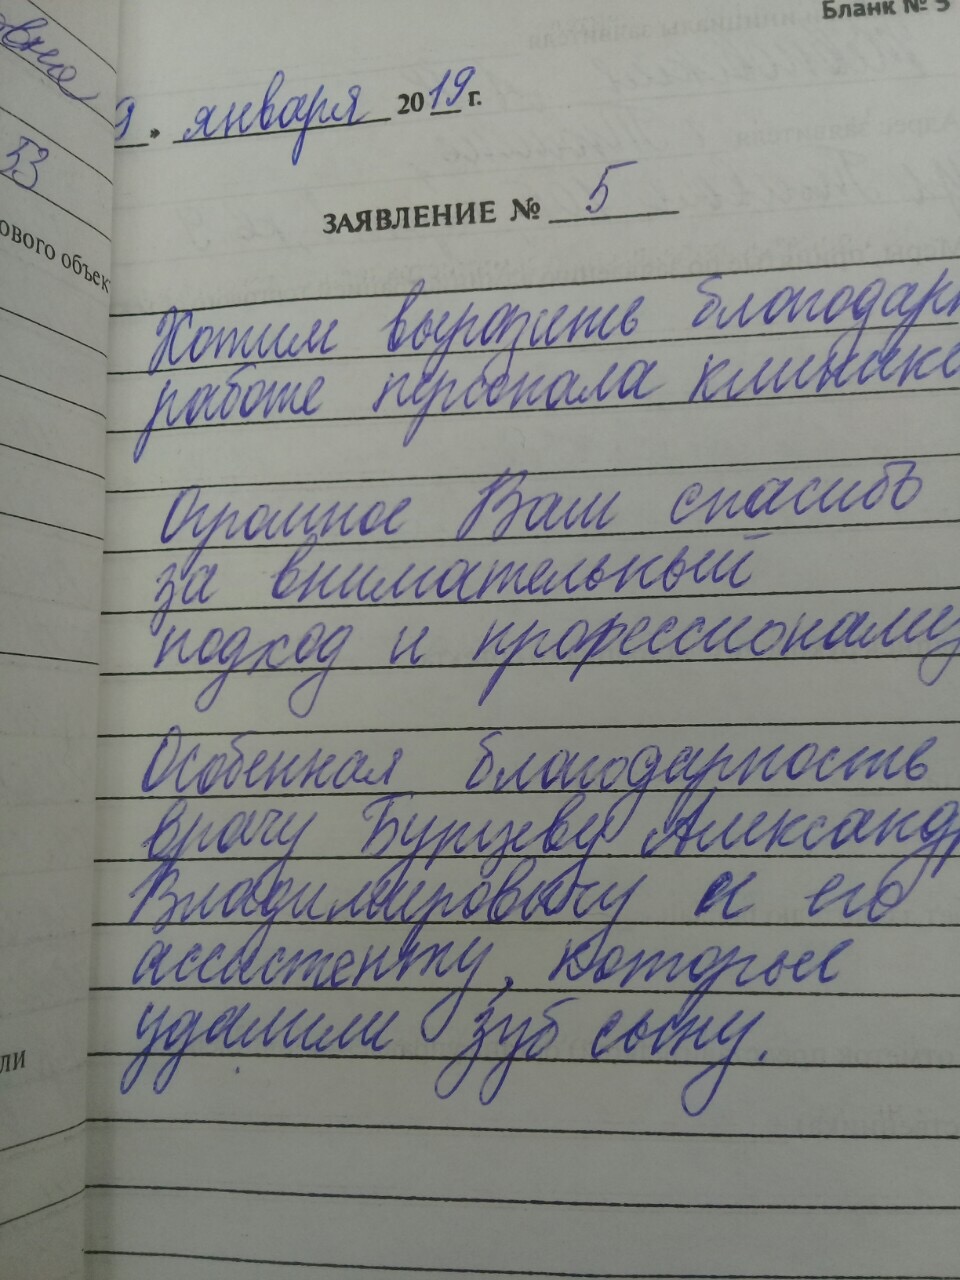 Бланк № 5
9 » января 2019 г.
ЗАЯВЛЕНИЕ № 5
Хотим выразить благодарн
работе персонала клинике
Огромное Вам спасибо
за внимательный
подход и профессионализ
Особенная благодарность
врачу Бурцеву Александр
Владимировичу и его
ассистенту, которые
удалили зуб сыну.
овна
53
ового объек
ли